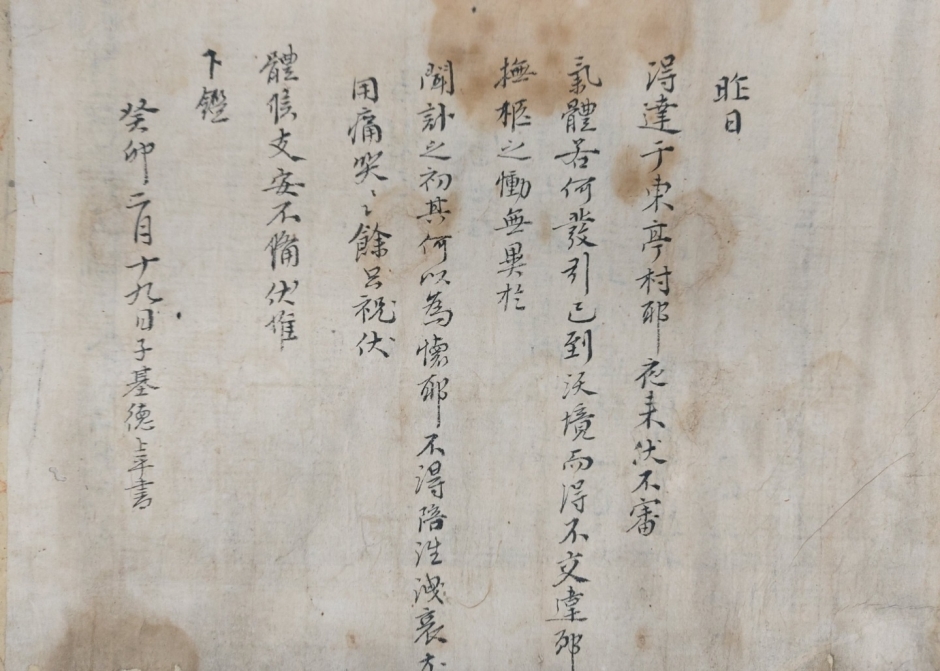 昨日
得達于東亭村耶夜來伏不審
氣體若何發引已到沃境而得不交違耶
撫柩之慟無異於
聞訃之初其何以爲懷耶不得陪往洩哀尤
用痛哭〻餘只祝伏
體候支安不備伏惟
下鑑
癸卯二月十九日子基德上平書